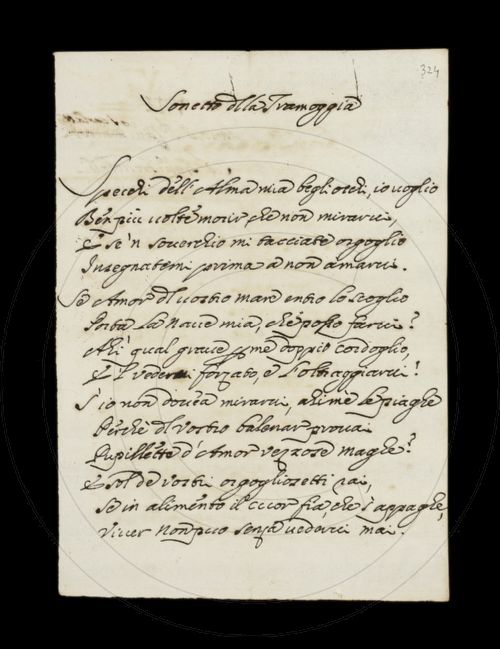 324
Sonetto della Tramoggia
Specchi dell'Alma mia begli occhi, io voglio
Ben più volte morir che non mirarvi,
E se'n soverchio mi tacciate orgoglio
Insegnatemi prima a non amarvi.
Se Amor del vostro mare entro lo scoglio
Porta la Nave mia, che posso farvi?
Ahi qual grave per me doppio cordoglio,
E'l vedervi forzato, e l'oltraggiarvi!
S'io non dovea mirarvi, ahimè le piaghe
Perchè del vostro balenar provai
Pupillette d'Amor vezzose maghe?
E sol de vostri orgogliosetti rai,
Se in alimento il cuor fia, che s'appaghe,
Viver non può senza vedervi mai.